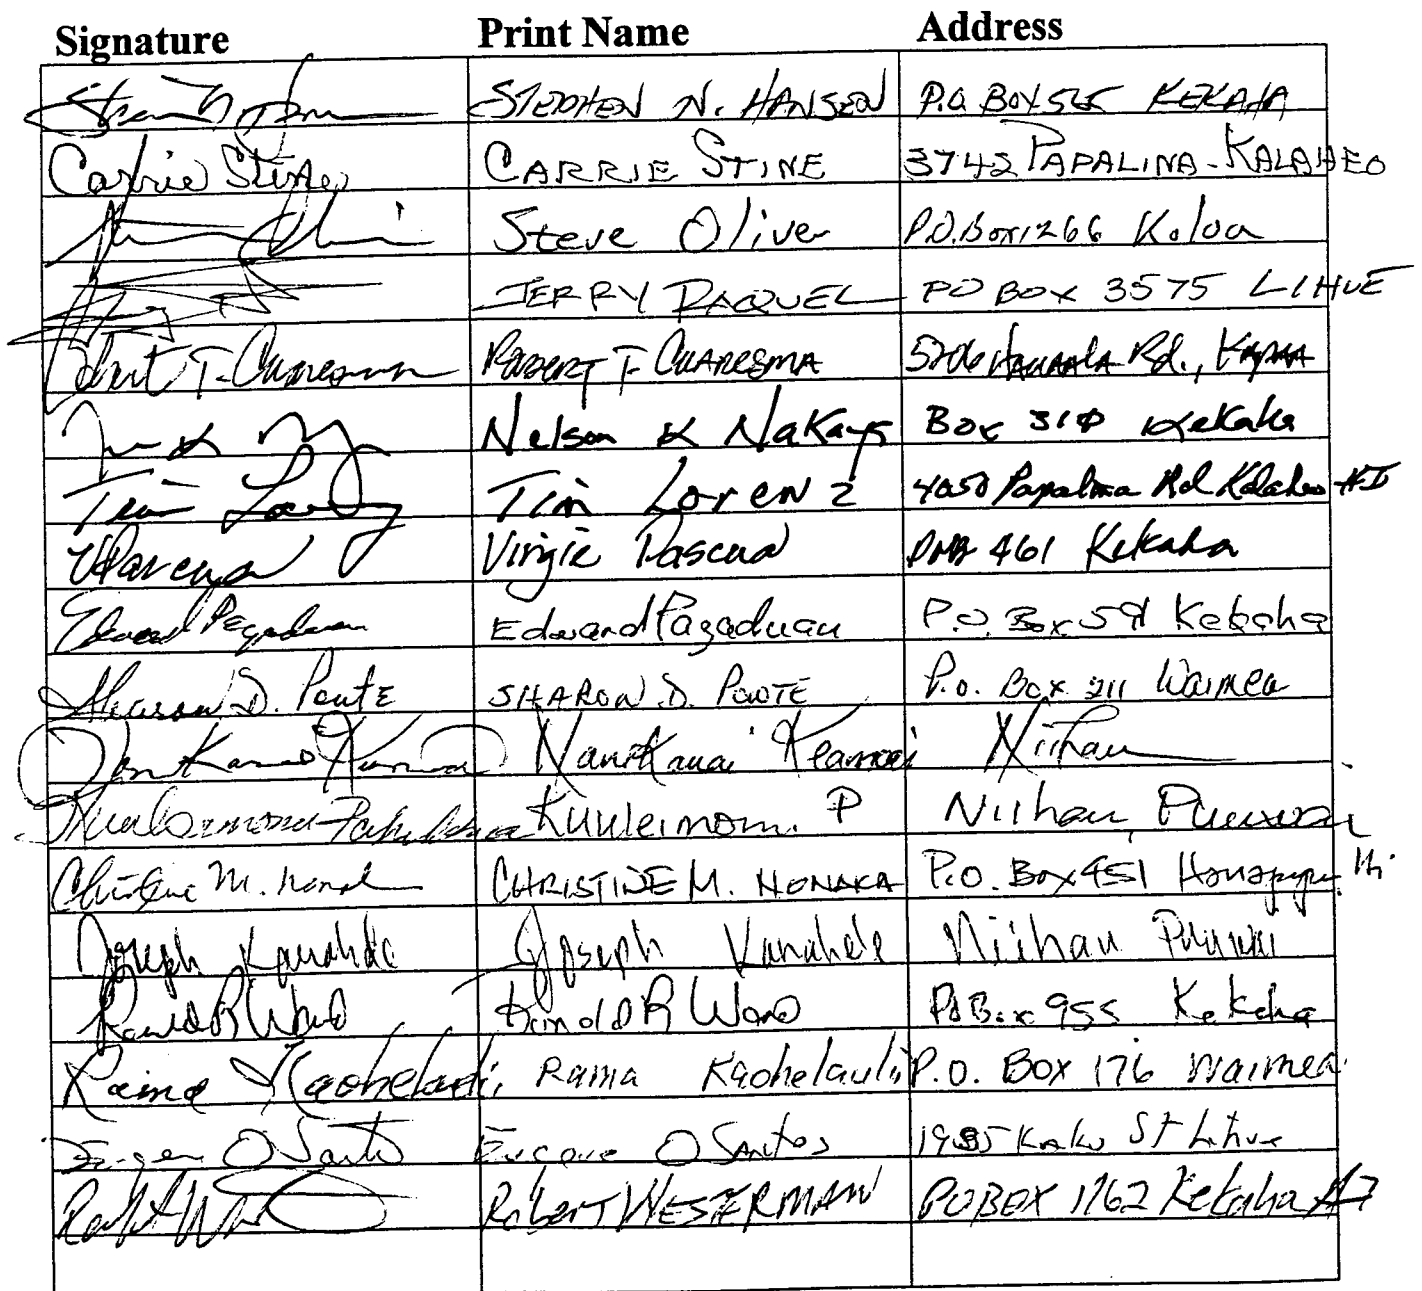 Signature Print Name Address
STEPHEN N. HANSEN P.O. BOX 565 KEKAHA
Carrie Stine CARRIE STINE 3742 PAPALINA - KALAHEO
Steve Oliver P.O. Box 1266 Koloa
JERRY RAQUEL PO BOX 3575 LIHUE
Robert T. Cuaresma ROBERT T. CUARESMA Rd., KAPAA
Nelson K Box 310 Kekaha
Tim Lorenz Tim Lorenz 4050 Papalina Rd Kalaheo HI
VPascua Virgie Pascua 461 Kekaha
Edward Pagaduan Edward Pagaduan P.O. Box 591 Kekaha
Sharon D. SHARON D. P.O. Box 211 Waimea
Niihau
Kuuleimomi P Niihau, Puuwai
Christine M. CHRISTINE M. NONAKA P.O. Box 451 Hanapepe, Hi
Joseph Kanahele Joseph Kanahele Niihau Puuwai
Ronald R Ronald R PO Box 955 Kekaha
Raina Kaohelaulii Raina Kaohelaulii P.O. BOX 176 Waimea
Eugene O Santos Eugene O Santos St Lihue
Robert WESTERMAN PO BOX 1762 Kekaha HI